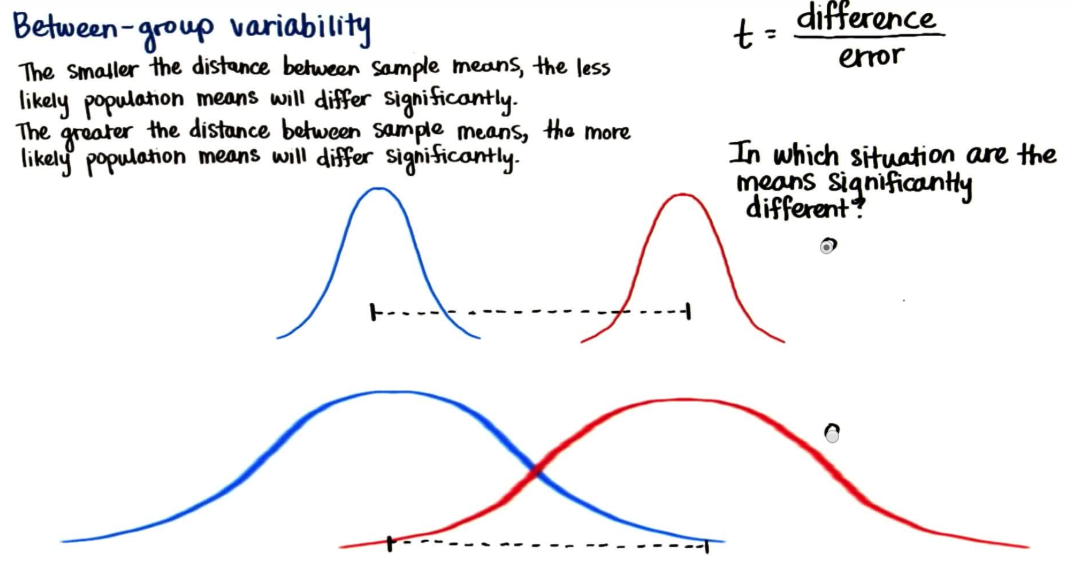 Between-group variability
The smaller the distance between sample means, the less
likely population means will differ significantly.
The greater the distance between sample means, the more
likely population means will differ significantly.
t = difference
error
In which situation are the
means significantly
different?